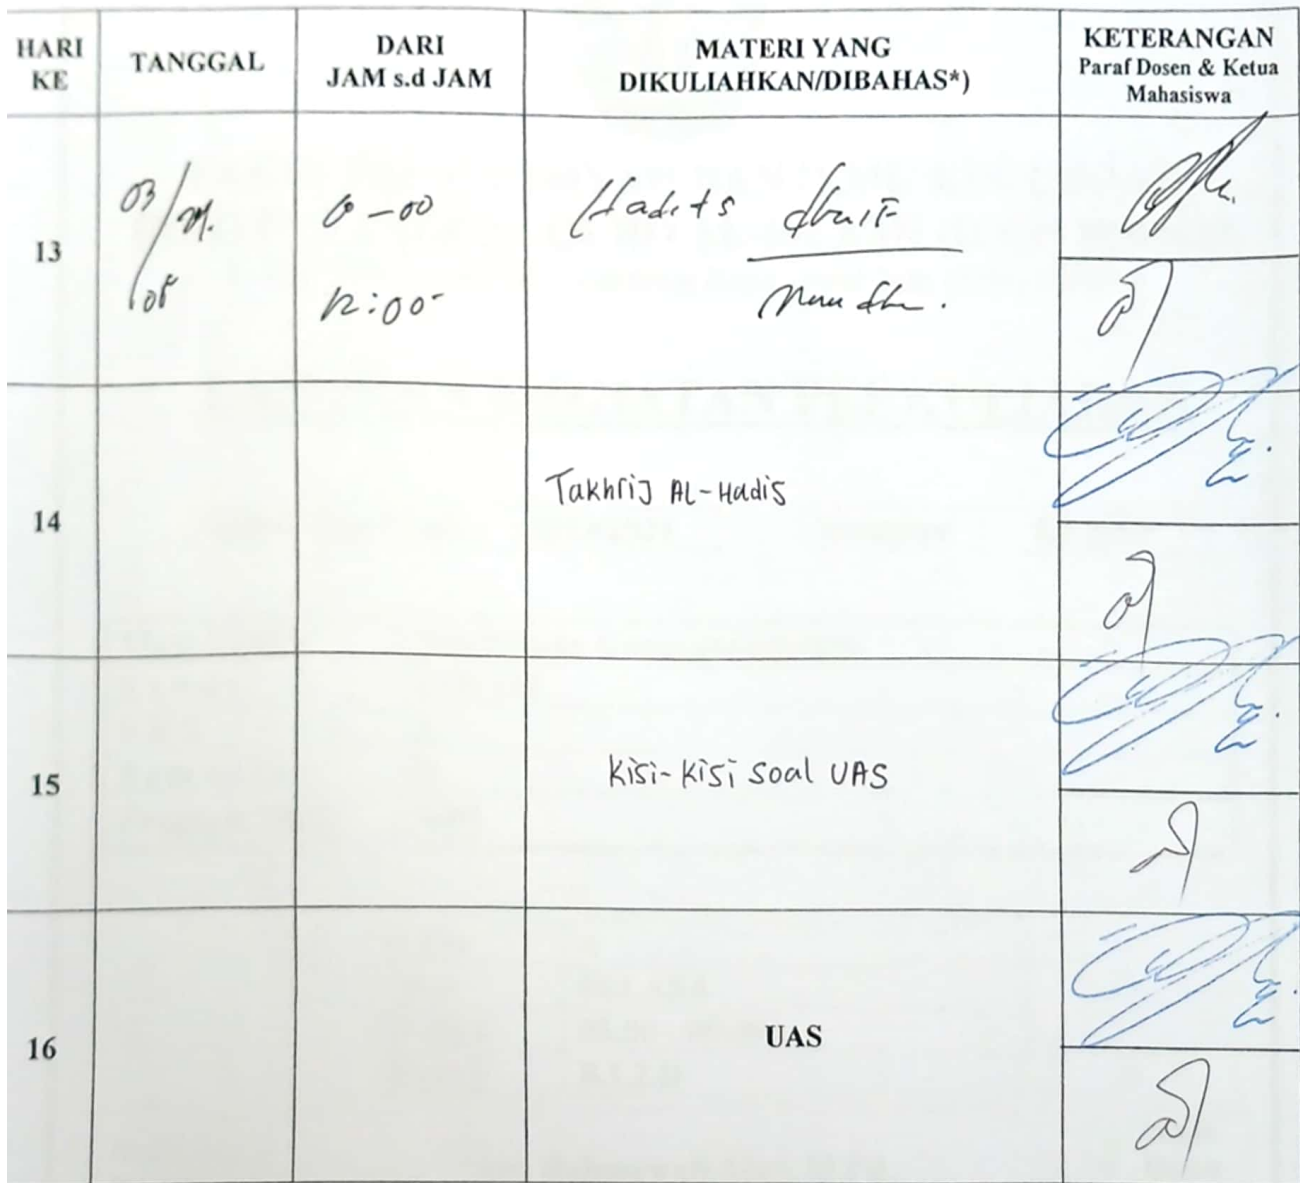 HARI KE
TANGGAL
DARI
JAM s.d JAM
MATERI YANG
DIKULIAHKAN/DIBAHAS*)
KETERANGAN
Paraf Dosen & Ketua
Mahasiswa
13
03/
08
-00
12:00
Hadits dhaif
14
Takhrij AL-Hadis
15
Kisi-Kisi Soal UAS
16
UAS